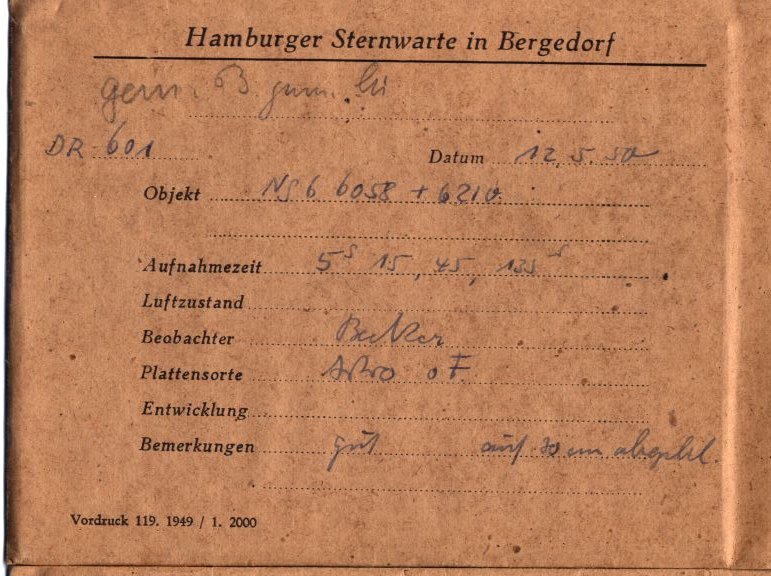 Hamburger Sternwarte in Bergedorf
gem. B
DR 601
Datum 12.5.50
Objekt NGC 6058 + 6210
Aufnahmezeit 5ˢ 15, 45, 135ˢ
Luftzustand
Beobachter Becker
Plattensorte Astro
Entwicklung
Bemerkungen gut auf
Vordruck 119. 1949 / 1. 2000